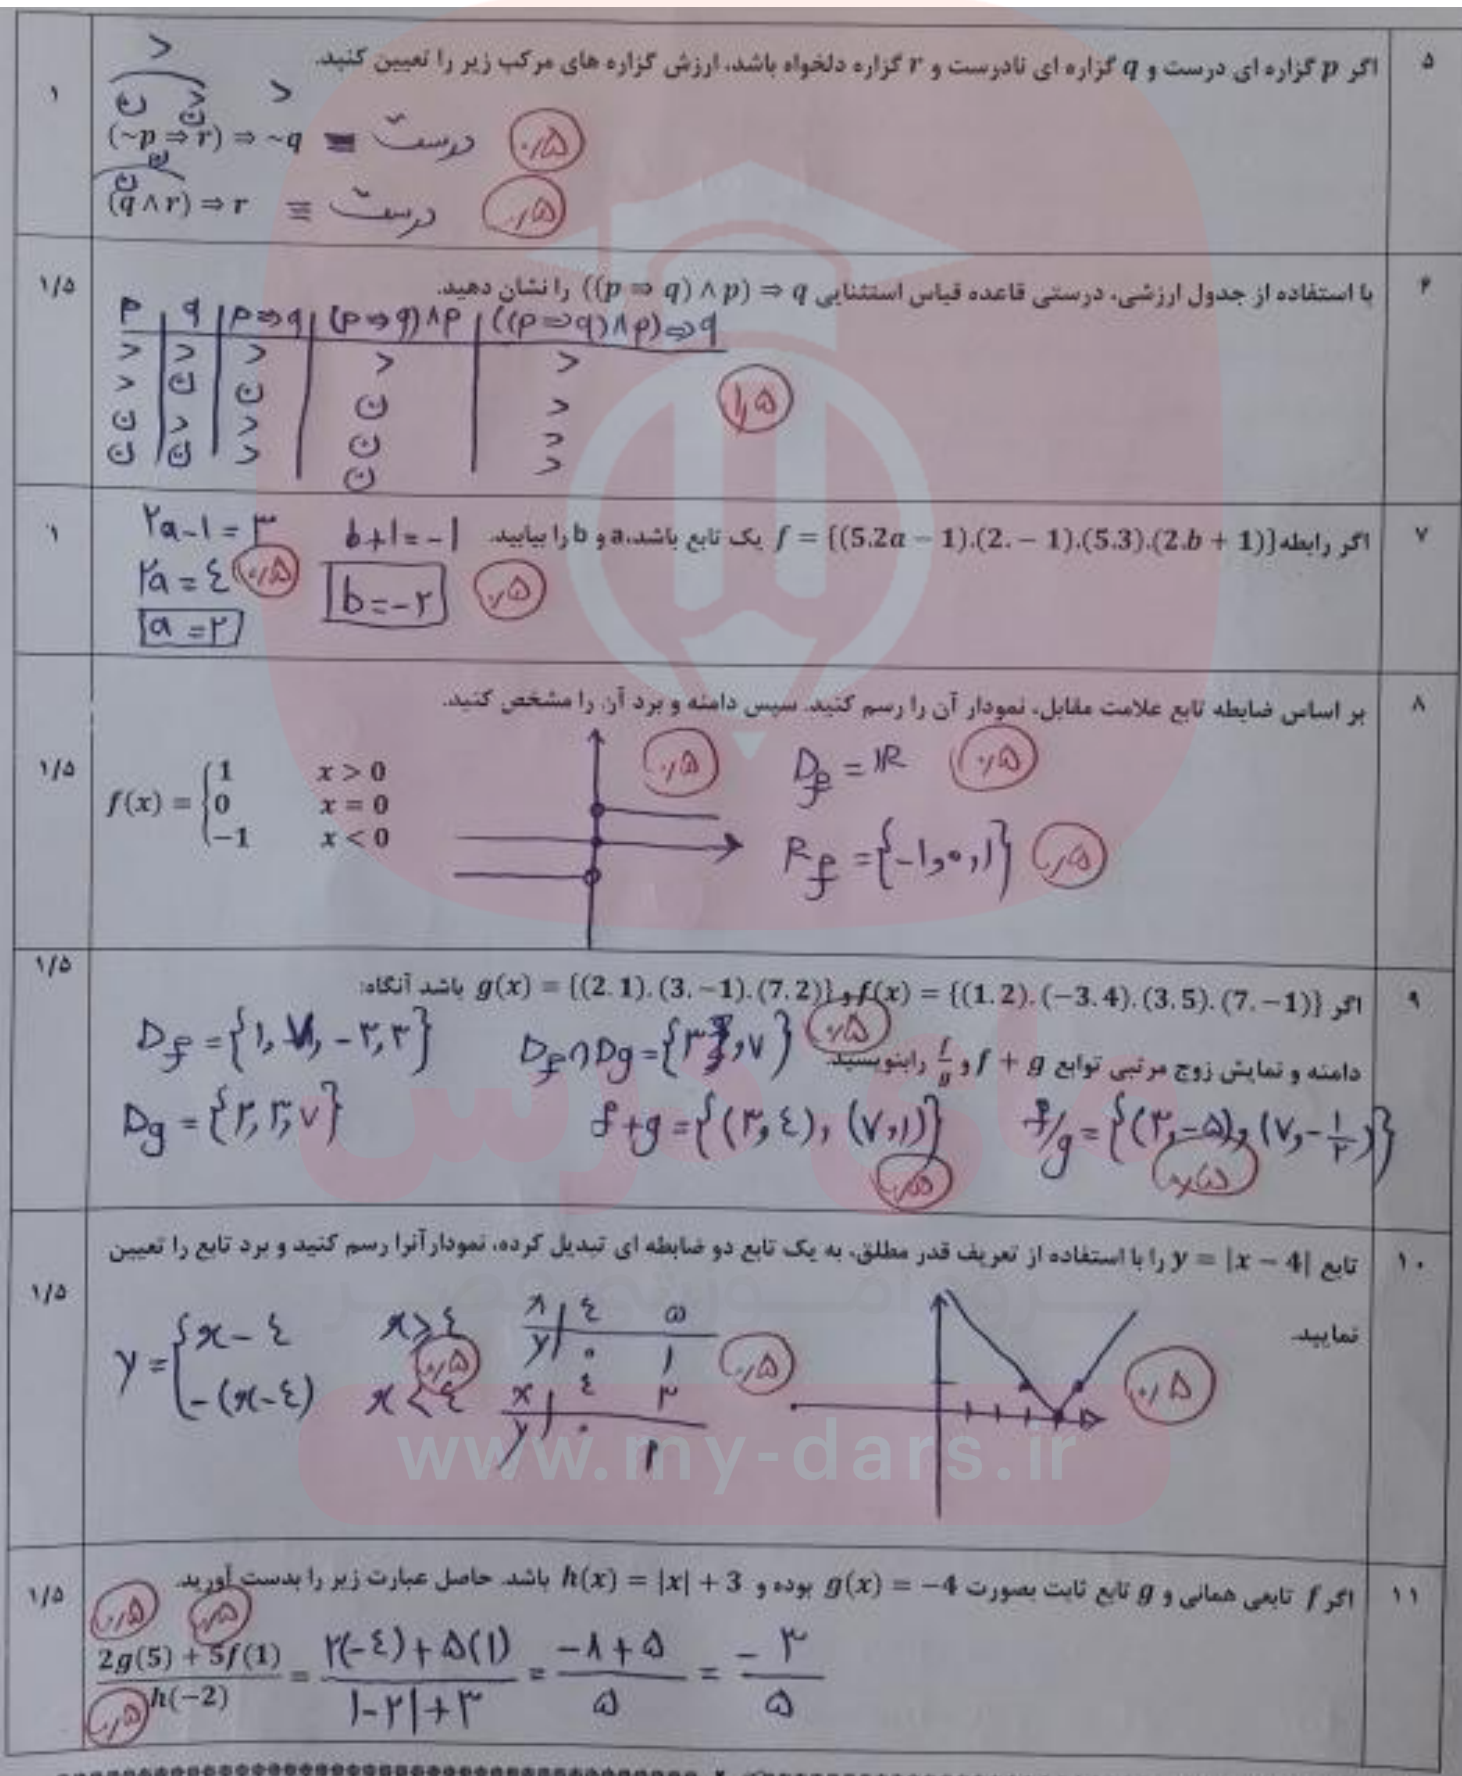 ۵ اگر p گزاره ای درست و q گزاره ای نادرست و r گزاره دلخواه باشد، ارزش گزاره های مرکب زیر را تعیین کنید. ۱
(~p ⇒ r) ⇒ ~q ≡ درست ۰/۵
(q ∧ r) ⇒ r ≡ درست ۰/۵
۶ با استفاده از جدول ارزشی، درستی قاعده قیاس استثنایی ((p ⇒ q) ∧ p) ⇒ q را نشان دهید. ۱/۵
p | q | p⇒q | (p⇒q)∧p | ((p⇒q)∧p)⇒q
د | د | د | د | د
د | ن | ن | ن | د
ن | د | د | ن | د
ن | ن | د | ن | د
۱٫۵
۷ اگر رابطه f = {(5.2a − 1).(2. − 1).(5.3).(2.b + 1)} یک تابع باشد،a و b را بیابید. ۱
۲a-۱=۳ b+۱=-۱
۲a=٤ ۰/۵ b=-۲ ۰/۵
a=۲
۸ بر اساس ضابطه تابع علامت مقابل، نمودار آن را رسم کنید. سپس دامنه و برد آن را مشخص کنید. ۱/۵
f(x) = {1 x > 0
0 x = 0
−1 x < 0
۰/۵ D_f = IR ۰/۵
R_f = {-۱,۰,۱} ۰/۵
۹ اگر f(x) = {(1.2).(−3.4).(3.5).(7.−1)} و g(x) = {(2.1).(3.−1).(7.2)} باشد آنگاه: ۱/۵
دامنه و نمایش زوج مرتبی توابع f + g و f/g رابنویسید.
D_f = {۱, ۷, -۳, ۳} D_f∩D_g = {۳,۷} ۰/۵
D_g = {۲,۳,۷} f+g = {(۳,٤), (۷,۱)} f/g = {(۳,-۵), (۷,-۱/۲)}
۰/۵ ۰/۵
۱۰ تابع y = |x − 4| را با استفاده از تعریف قدر مطلق، به یک تابع دو ضابطه ای تبدیل کرده، نمودارآنرا رسم کنید و برد تابع را تعیین
نمایید. ۱/۵
y = {x-٤ x≥٤
-(x-٤) x<٤ ۰/۵
x | ٤ ۵
y | ۰ ۱ ۰/۵
x | ٤ ۳
y | ۰ ۱
۰/۵
۱۱ اگر f تابعی همانی و g تابع ثابت بصورت g(x) = −4 بوده و h(x) = |x| + 3 باشد. حاصل عبارت زیر را بدست آورید. ۱/۵
۰/۵ ۰/۵
(2g(5) + 5f(1))/h(−2) = (۲(-٤)+۵(۱))/(|-۲|+۳) = (-۸+۵)/۵ = -۳/۵
۰/۵
مای درس
www.my-dars.ir